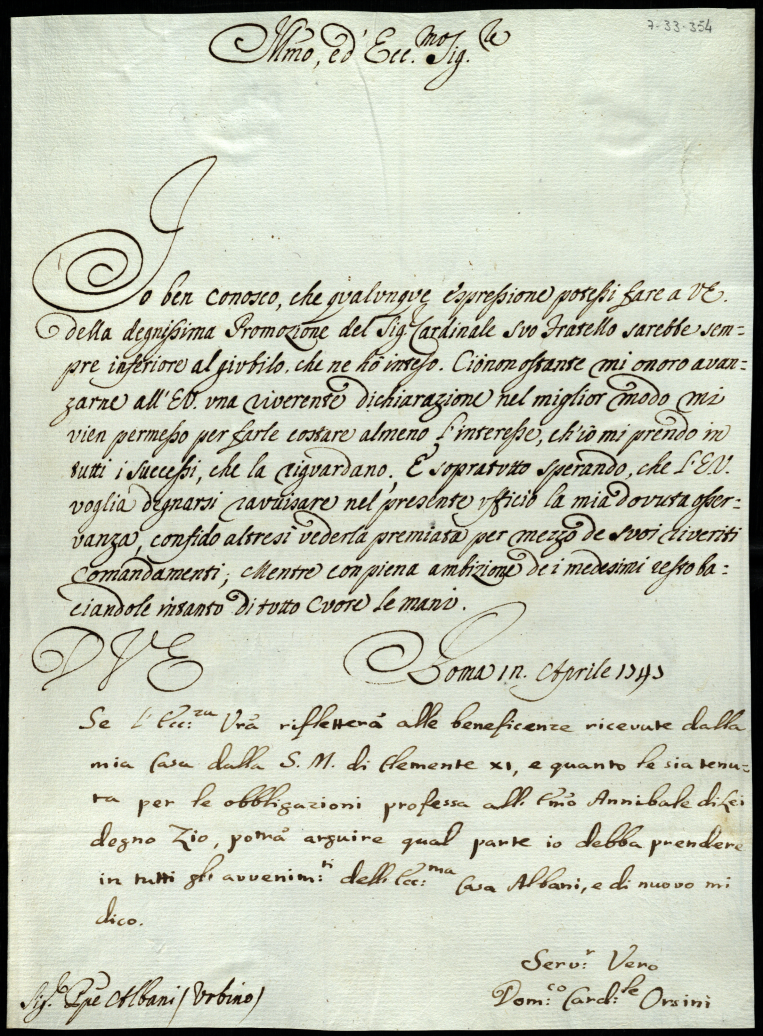 7-33-354
Illmo, ed Ecc.mo Sig.re
Io ben conosco, che qualunque espressione potessi fare a VE.
della degnissima Promozione del Sig.r Cardinale suo Fratello sarebbe sem=
pre inferiore al giubilo, che ne hò inteso. Ciònonostante mi onoro avan=
zarne all'EV. una riverente dichiarazione nel miglior modo mi
vien permesso per farle costare almeno l'interesse, ch'io mi prendo in
tutti i successi, che la riguardano; E sopratutto sperando, che l'E.V.
voglia degnarsi ravvisare nel presente ufficio la mia dovuta osser=
vanza, confido altresi vederla premiata per mezzo de suoi riveriti
comandamenti; Mentre con piena ambizione de i medesimi resto ba=
ciandole intanto di tutto Cuore le mani.
D V E
Roma in. Aprile 1747
Se l'Ecc:za Vrã rifletterà alle beneficenze ricevute dalla
mia Casa dalla S. M. di Clemente XI, e quanto le sia tenu=
ta per le obbligazioni professa all: Emo Annibale di Lei
degno Zio, potrà arguire qual parte io debba prendere
in tutti gli avvenim:ti dell: Ecc:ma Casa Albani, e di nuovo mi
dico.
Serv:r Vero
Dom:co Card:le Orsini
Sig.r Ppe Albani (Urbino)